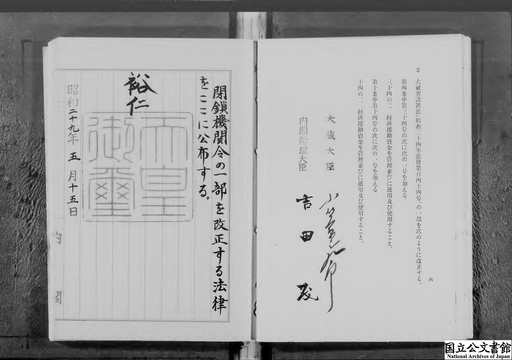 2 大蔵省設置法(昭和二十四年法律第百四十四号)の一部を次のように改正する。
第四条中第三十四号の次に次の一号を加える。
三十四の二 経済援助資金を管理並びに運用及び使用すること。
第十条中第十四号の次に次の一号を加える。
十四の二 経済援助資金を管理並びに運用及び使用すること。
大蔵大臣
小笠原
内閣総理大臣
吉田茂
閉鎖機関令の一部を改正する法律
をここに公布する。
裕仁
天皇
御璽
昭和二十九年五月十五日
内閣
国立公文書館
National Archives of Japan